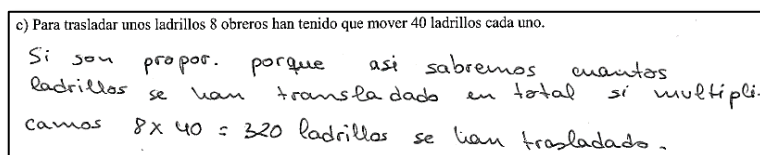 c) Para trasladar unos ladrillos 8 obreros han tenido que mover 40 ladrillos cada uno.
Si son propor. porque asi sabremos cuantos
ladrillos se han transladado en total si multipli-
camos 8 x 40 = 320 ladrillos se han trasladado.